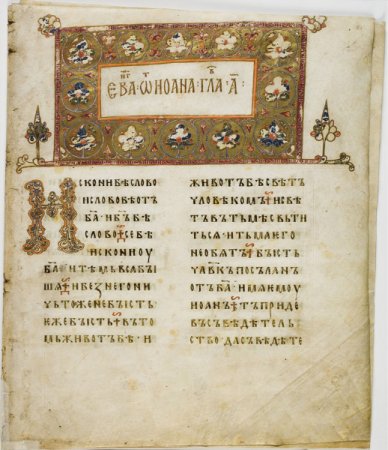 ЕВА҃Г Ѿ ИОАНА · ГЛА҃В · А҃ ·
ИСКОНИ БѢ СЛОВО
И СЛОВО БѢ ОТЪ
БА҃ · И БЪ҃ БѢ
СЛОВО · СЕ БѢ
ИСКОНИ ОУ
БА҃ · И ТѢМЬ ВЬСѦ БЫ
ШѦ · И БЕЖ НЕГО НИ
ЧЬТОЖЕ НЕ БЫСТЬ ·
ЕЖЕ БЫСТЬ · ВЪ ТО
МЬ ЖИВОТЪ БѢ · И
ЖИВОТЪ БѢ СВѢТЪ
ЧЛОВѢКОМЪ · И СВѢ
ТЪ ВЪ ТЬМѢ СВЬТИ
ТЬСѦ · И ТЬМА ЕГО
НЕ ОБѦТЪ · БЫСТЬ
ЧЛ҃ВКЪ ПОСЪЛАНЪ
ОТЪ БА҃ · ИМѦ ЕМОУ
ИОАНЪ · ТЪ ПРИДЕ
ВЪ СЪВѢДѢТЕЛЬ
СТВО · ДА СЪВѢДѢТЕ